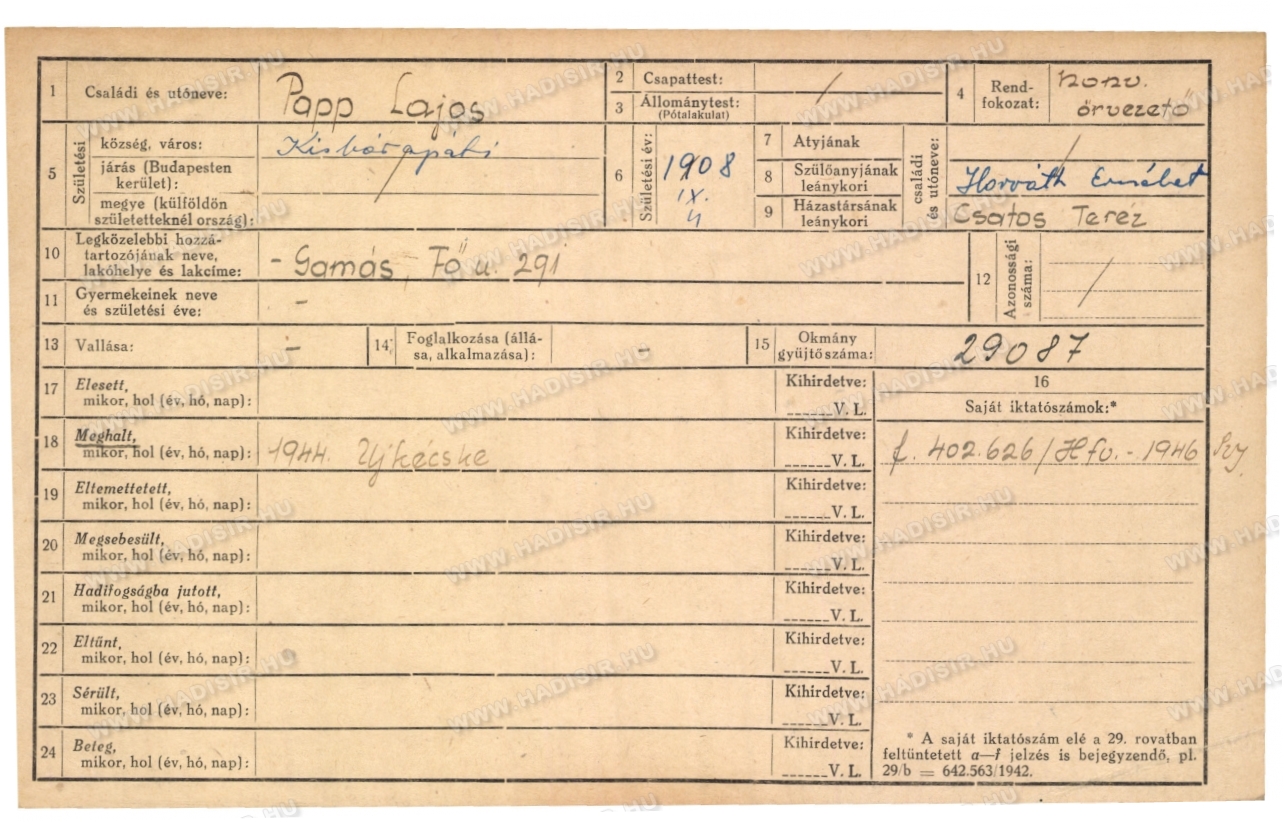 1 Családi és utóneve: Papp Lajos
2 Csapattest: /
3 Állománytest:
(Pótalakulat)
4 Rendfokozat: honv. őrvezető
5 Születési
község, város: Kisbárapáti
járás (Budapesten
kerület): /
megye (külföldön
születetteknél ország):
6 Születési év: 1908
IX.
4
7 Atyjának /
8 Szülőanyjának
leánykori Horváth Erzsébet
9 Házastársának
leánykori Csatos Teréz
családi
és utóneve:
10 Legközelebbi hozzá-
tartozójának neve,
lakóhelye és lakcíme: - Gamás, Fő u. 291
11 Gyermekeinek neve
és születési éve: -
12 Azonossági
száma: /
13 Vallása: -
14 Foglalkozása (állá-
sa, alkalmazása): -
15 Okmány
gyüjtőszáma: 29087
16
Saját iktatószámok:*
f. 402.626/Hfv.-1946
17 Elesett,
mikor, hol (év, hó, nap):
Kihirdetve:
V. L.
18 Meghalt,
mikor, hol (év, hó, nap): 1944. Ujkécske
Kihirdetve:
V. L.
19 Eltemettetett,
mikor, hol (év, hó, nap):
Kihirdetve:
V. L.
20 Megsebesült,
mikor, hol (év, hó, nap):
Kihirdetve:
V. L.
21 Hadifogságba jutott,
mikor, hol (év, hó, nap):
Kihirdetve:
V. L.
22 Eltűnt,
mikor, hol (év, hó, nap):
Kihirdetve:
V. L.
23 Sérült,
mikor, hol (év, hó, nap):
Kihirdetve:
V. L.
24 Beteg,
mikor, hol (év, hó, nap):
Kihirdetve:
V. L.
* A saját iktatószám elé a 29. rovatban
feltüntetett a—f jelzés is bejegyzendő, pl.
29/b = 642.563/1942.
WWW.HADISIR.HU